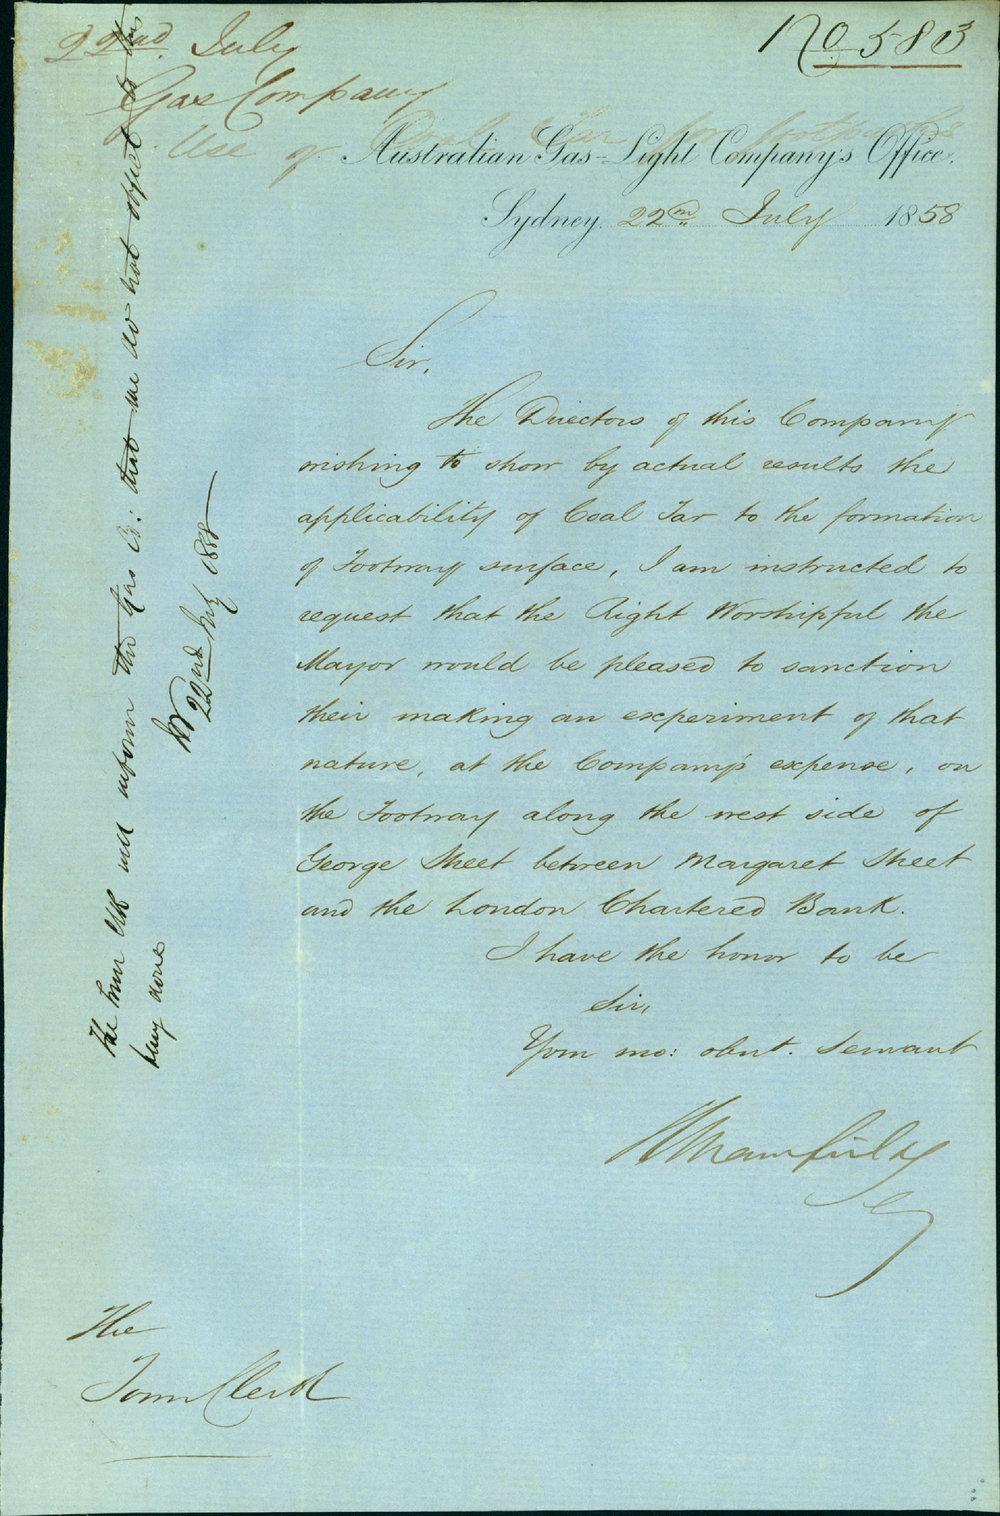 No 583
22nd July
Gas Company
Use of Coal Tar for footpaths
Australian Gas-Light Company's Office.
Sydney 22nd July 1858
Sir,
The Directors of this Company
wishing to show by actual results the
applicability of Coal Tar to the formation
of Footway surface, I am instructed to
request that the Right Worshipful the
Mayor would be pleased to sanction
their making an experiment of that
nature, at the Company's expense, on
the Footway along the west side of
George Street between Margaret Street
and the London Chartered Bank.
I have the honor to be
Sir,
Your mo: obnt. Servant
The
Town Clerk
The Town Clk will inform the Gas Co: that we do not object to this
being done
22nd July 1858